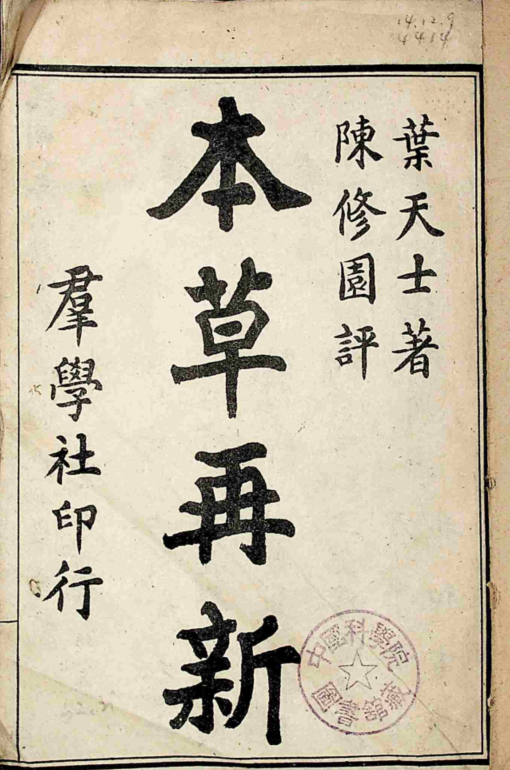 葉天士著
陳修園評
本草再新
羣學社印行
中國科學院
圖書館藏
14.12.9
4414